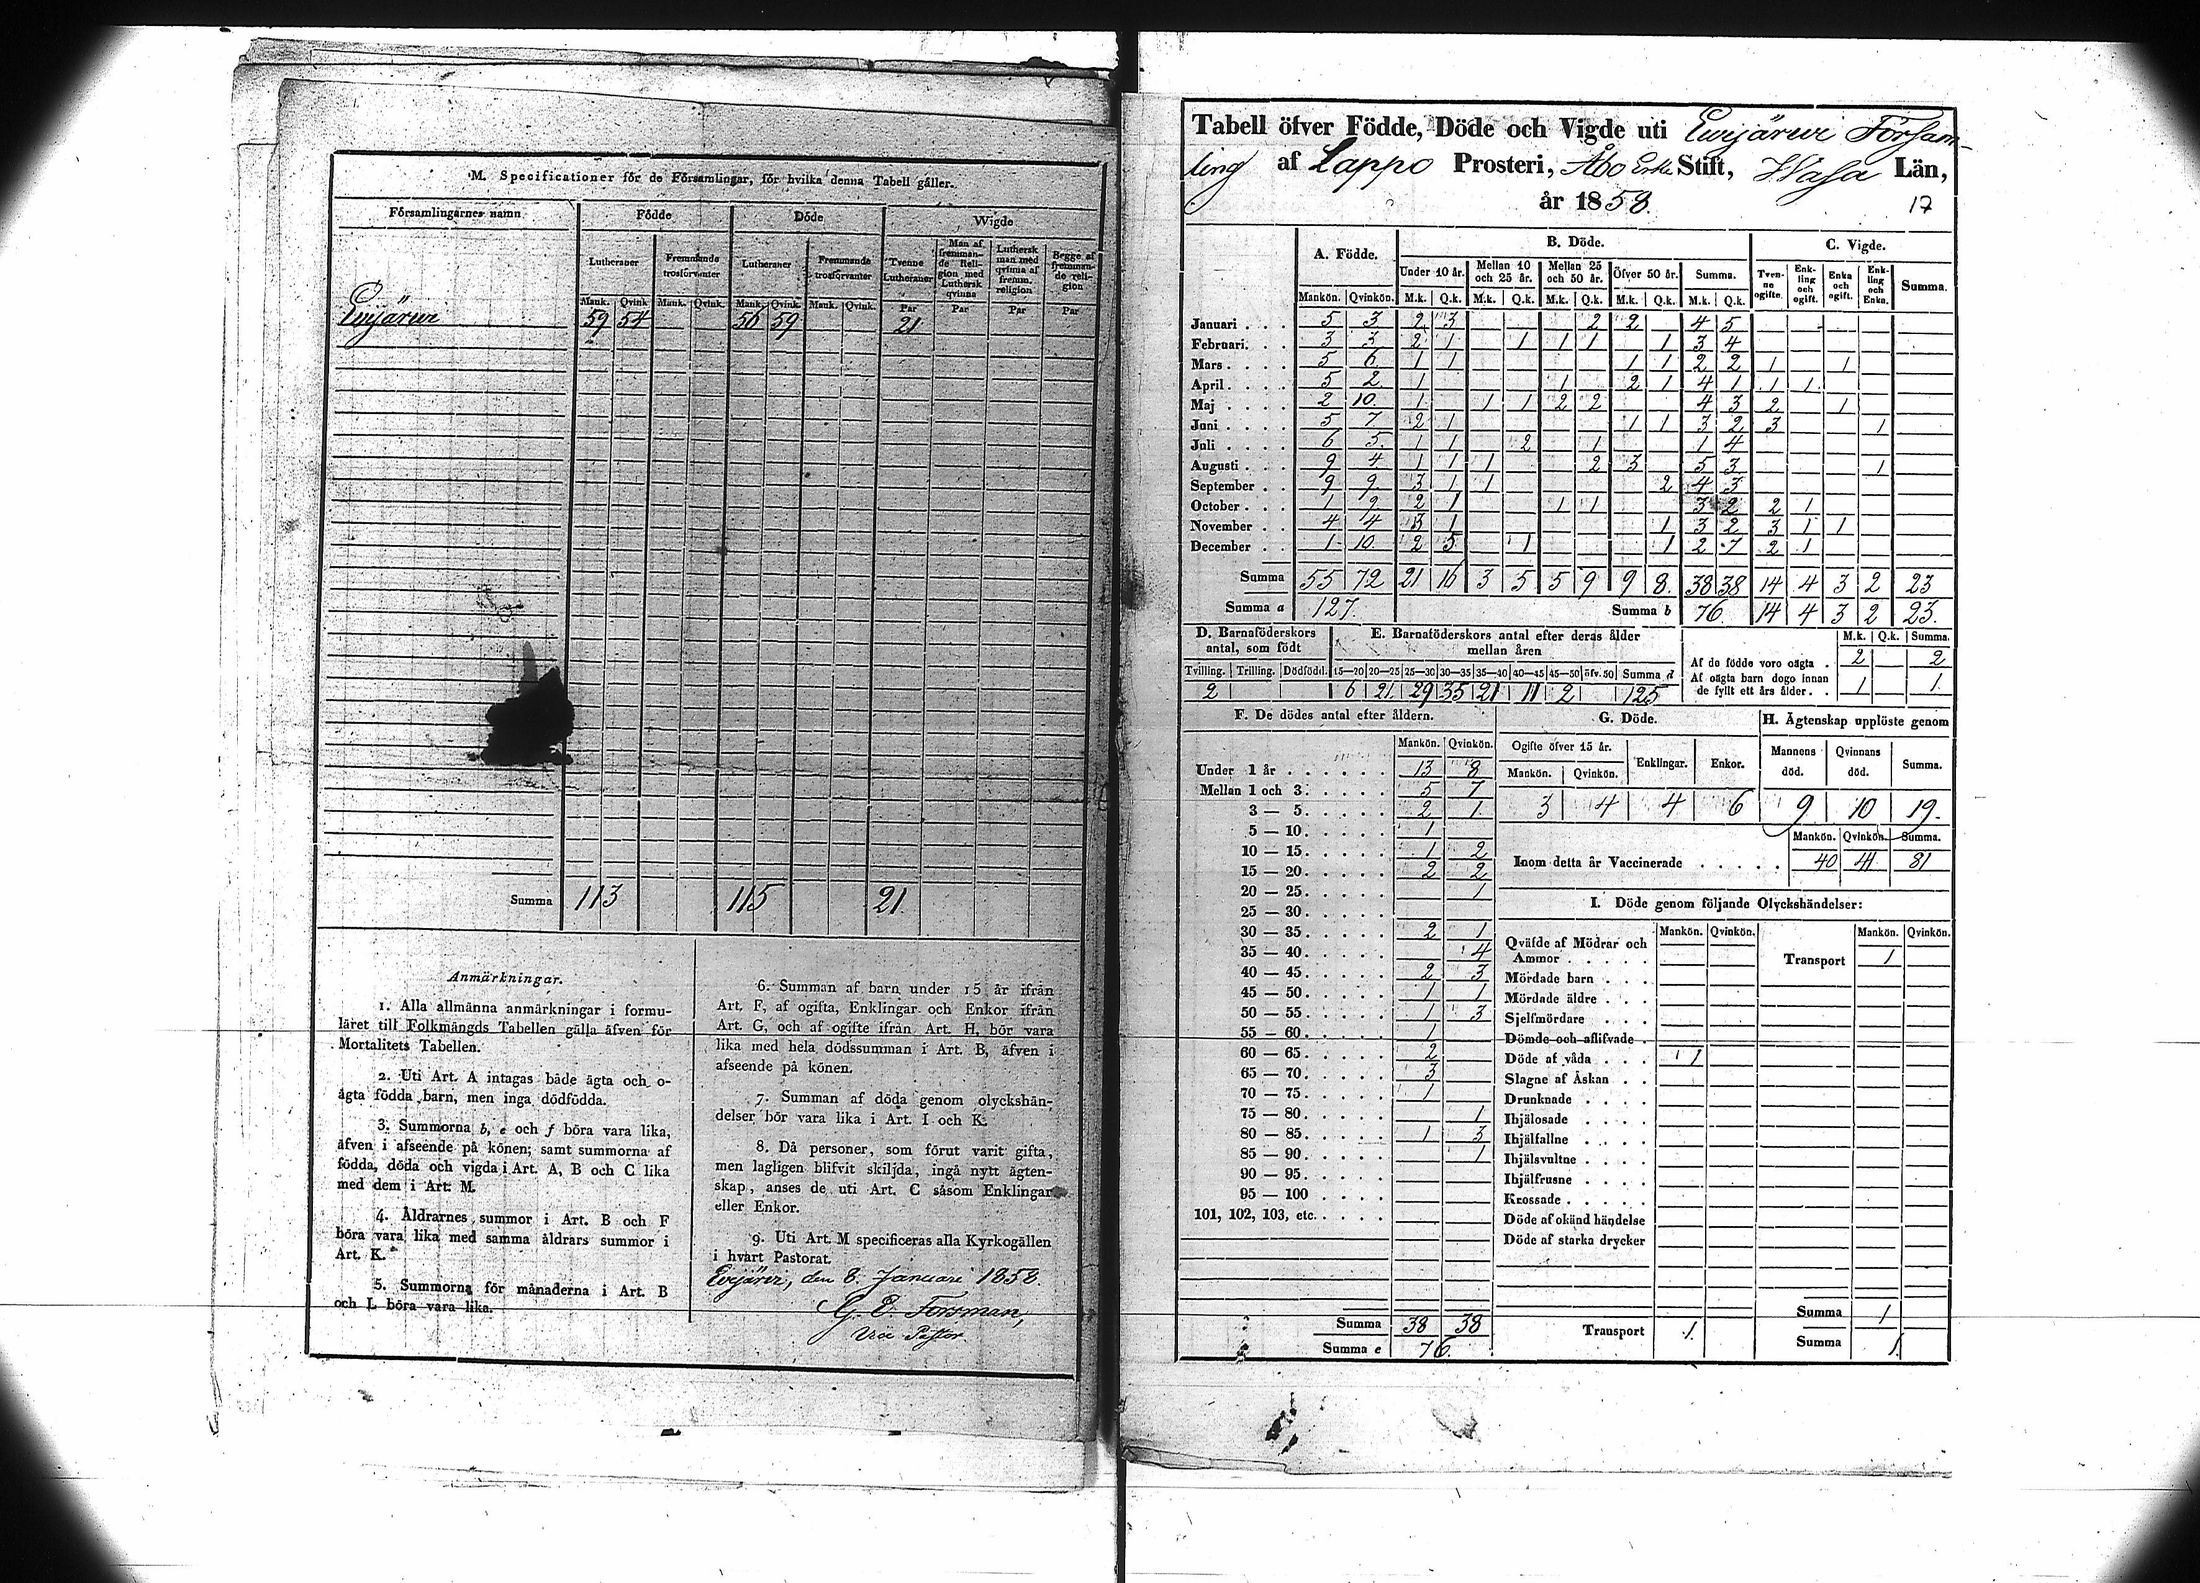 M. Specificationer för de Församlingar, för hvilka denna Tabell gäller.
Församlingarnes namn | Födde | Döde | Wigde
Lutheraner | Fremmande trosförvanter | Lutheraner | Fremmande trosförvanter | Tvenne Lutheraner | Man af fremmande Religion med Luthersk qvinna | Luthersk man med qvinna af fremm. religion | Begge af fremmande religion
Mank. | Qvink. | Mank. | Qvink. | Mank. | Qvink. | Mank. | Qvink. | Par | Par | Par | Par
Evijärvi 59 54 56 59 21
Summa 113 115 21.
Anmärkningar.
1. Alla allmänna anmärkningar i formu-
läret till Folkmängds Tabellen gälla äfven för
Mortalitets Tabellen.
2. Uti Art. A intagas både ägta och o-
ägta födda barn, men inga dödfödda.
3. Summorna b, e och f böra vara lika,
äfven i afseende på könen; samt summorna af
födda, döda och vigda i Art. A, B och C lika
med dem i Art. M.
4. Åldrarnes summor i Art. B och F
böra vara lika med samma åldrars summor i
Art. K.
5. Summorna för månaderna i Art. B
och L böra vara lika.
6. Summan af barn under 15 år ifrån
Art. F, af ogifta, Enklingar och Enkor ifrån
Art. G, och af ogifte ifrån Art. H, bör vara
lika med hela dödssumman i Art. B, äfven i
afseende på könen.
7. Summan af döda genom olyckshän-
delser bör vara lika i Art. I och K.
8. Då personer, som förut varit gifta,
men lagligen blifvit skiljda, ingå nytt ägten-
skap, anses de uti Art. C såsom Enklingar
eller Enkor.
9. Uti Art. M specificeras alla Kyrkogällen
i hvart Pastorat.
Evijärvi, den 8. Januari 1858.
G. E. Forsman,
Vice Pastor
Tabell öfver Födde, Döde och Vigde uti Evijärvi Försam-
ling af Lappo Prosteri, Åbo Erke Stift, Wasa Län,
år 1858. 17
A. Födde. | B. Döde. | C. Vigde.
Under 10 år. | Mellan 10 och 25 år. | Mellan 25 och 50 år. | Öfver 50 år. | Summa. | Tvenne ogifte. | Enkling och ogift. | Enka och ogift. | Enkling och Enka. | Summa.
Mankön. | Qvinkön. | M.k. | Q.k. | M.k. | Q.k. | M.k. | Q.k. | M.k. | Q.k. | M.k. | Q.k.
Januari . . . 5 3 2 3 2 2 4 5
Februari. . . 3 3 2 1 1 1 1 1 3 4
Mars . . . . 5 6 1 1 1 1 2 2 1 1
April . . . . 5 2 1 1 2 1 4 1 1 1
Maj . . . . 2 10 1 1 1 2 2 4 3 2 1
Juni . . . . 5 7 2 1 1 1 3 2 3 1
Juli . . . . 6 5 1 1 2 1 1 4
Augusti . . . 9 4 1 1 1 2 3 5 3 1
September . . 9 9 3 1 1 2 4 3
October . . . 1 9 2 1 1 1 3 2 2 1
November . . 4 4 3 1 1 3 2 3 1 1
December . . 1 10 2 5 1 1 2 7 2 1
Summa 55 72 21 16 3 5 5 9 9 8 38 38 14 4 3 2 23
Summa a 127. Summa b 76. 14 4 3 2 23.
D. Barnaföderskors antal, som födt
Tvilling. | Trilling. | Dödfödd.
2
E. Barnaföderskors antal efter deras ålder mellan åren
15—20 | 20—25 | 25—30 | 30—35 | 35—40 | 40—45 | 45—50 | öfv. 50 | Summa d
6 21 29 35 21 11 2 125
M.k. | Q.k. | Summa.
Af de födde voro oägta . 2 2
Af oägta barn dogo innan
de fyllt ett års ålder . . 1 1.
F. De dödes antal efter åldern.
Mankön. | Qvinkön.
Under 1 år . . . . . . 13 8
Mellan 1 och 3. . . . . 5 7
3 — 5. . . . . 2 1
5 — 10. . . . . 1
10 — 15. . . . . 1 2
15 — 20. . . . . 2 2
20 — 25. . . . . 1
25 — 30. . . . .
30 — 35. . . . . 2 1
35 — 40. . . . . 4
40 — 45. . . . . 2 3
45 — 50. . . . . 1 1
50 — 55. . . . . 1 3
55 — 60. . . . . 1
60 — 65. . . . . 2
65 — 70. . . . . 3
70 — 75. . . . . 1
75 — 80. . . . . 1
80 — 85. . . . . 1 3
85 — 90. . . . . 1
90 — 95. . . . .
95 — 100 . . . .
101, 102, 103, etc. . . . .
Summa 38 38
Summa e 76.
G. Döde.
Ogifte öfver 15 år. | Enklingar. | Enkor.
Mankön. | Qvinkön.
3 4 4 6
H. Ägtenskap upplöste genom
Mannens död. | Qvinnans död. | Summa.
9 10 19.
Mankön. | Qvinkön. | Summa.
Inom detta år Vaccinerade . . . . . 40 41 81
I. Döde genom följande Olyckshändelser:
Mankön. | Qvinkön. | Mankön. | Qvinkön.
Qväfde af Mödrar och
Ammor . . . . . Transport 1
Mördade barn . . .
Mördade äldre . . .
Sjelfmördare . . .
Dömde och aflifvade .
Döde af våda . . . 1
Slagne af Åskan . .
Drunknade . . . .
Ihjälosade . . . .
Ihjälfallne . . . .
Ihjälsvultne . . . .
Ihjälfrusne . . . .
Krossade . . . . .
Döde af okänd händelse
Döde af starka drycker
Summa 1
Transport 1. Summa 1.